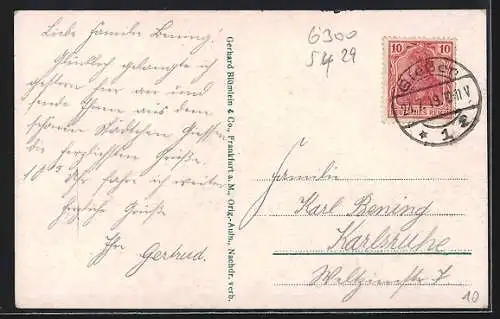 Liebe Familie Bening!
Glücklich gelangte ich
gestern hier an und
sende Ihnen aus dem
schönen Städtchen Giessen
die herzlichsten Grüße.
Uhr fahre ich weiter
Grüße
Ihre Gertrud.
Gerhard Blümlein & Co., Frankfurt a. M., Orig.-Aufn., Nachdr. verb.
6300
5429
10 10
Giessen
* 1
Familie
Karl Bening
Karlsruhe
7
10